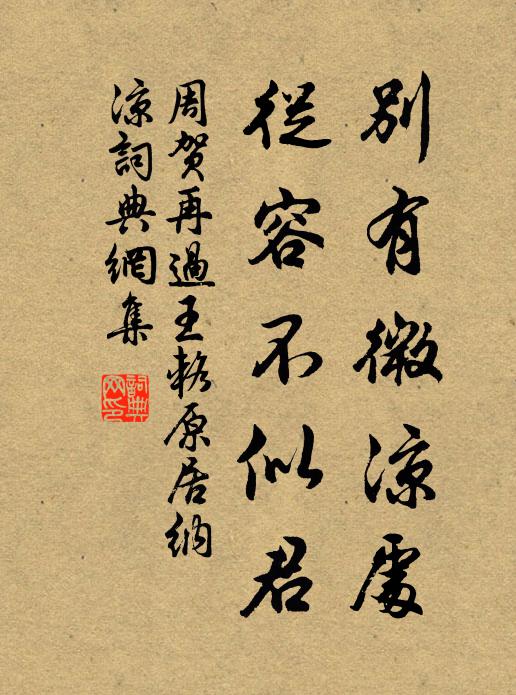 別有微涼處
從容不似君
周賀再過王輅原居納
涼詞典網集
詞典
网印